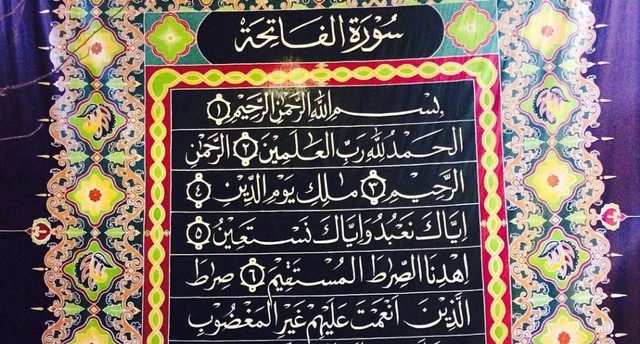 سُورَةُ الْفَاتِحَة
بِسْمِ اللهِ الرَّحْمٰنِ الرَّحِيْمِ ١
الْحَمْدُ لِلّٰهِ رَبِّ الْعَالَمِيْنَ ٢ الرَّحْمٰنِ
الرَّحِيْمِ ٣ مٰلِكِ يَوْمِ الدِّيْنِ ٤
اِيَّاكَ نَعْبُدُ وَاِيَّاكَ نَسْتَعِيْنُ ٥
اِهْدِنَا الصِّرَاطَ الْمُسْتَقِيْمَ ٦ صِرَاطَ
الَّذِيْنَ اَنْعَمْتَ عَلَيْهِمْ غَيْرِ الْمَغْضُوْبِ